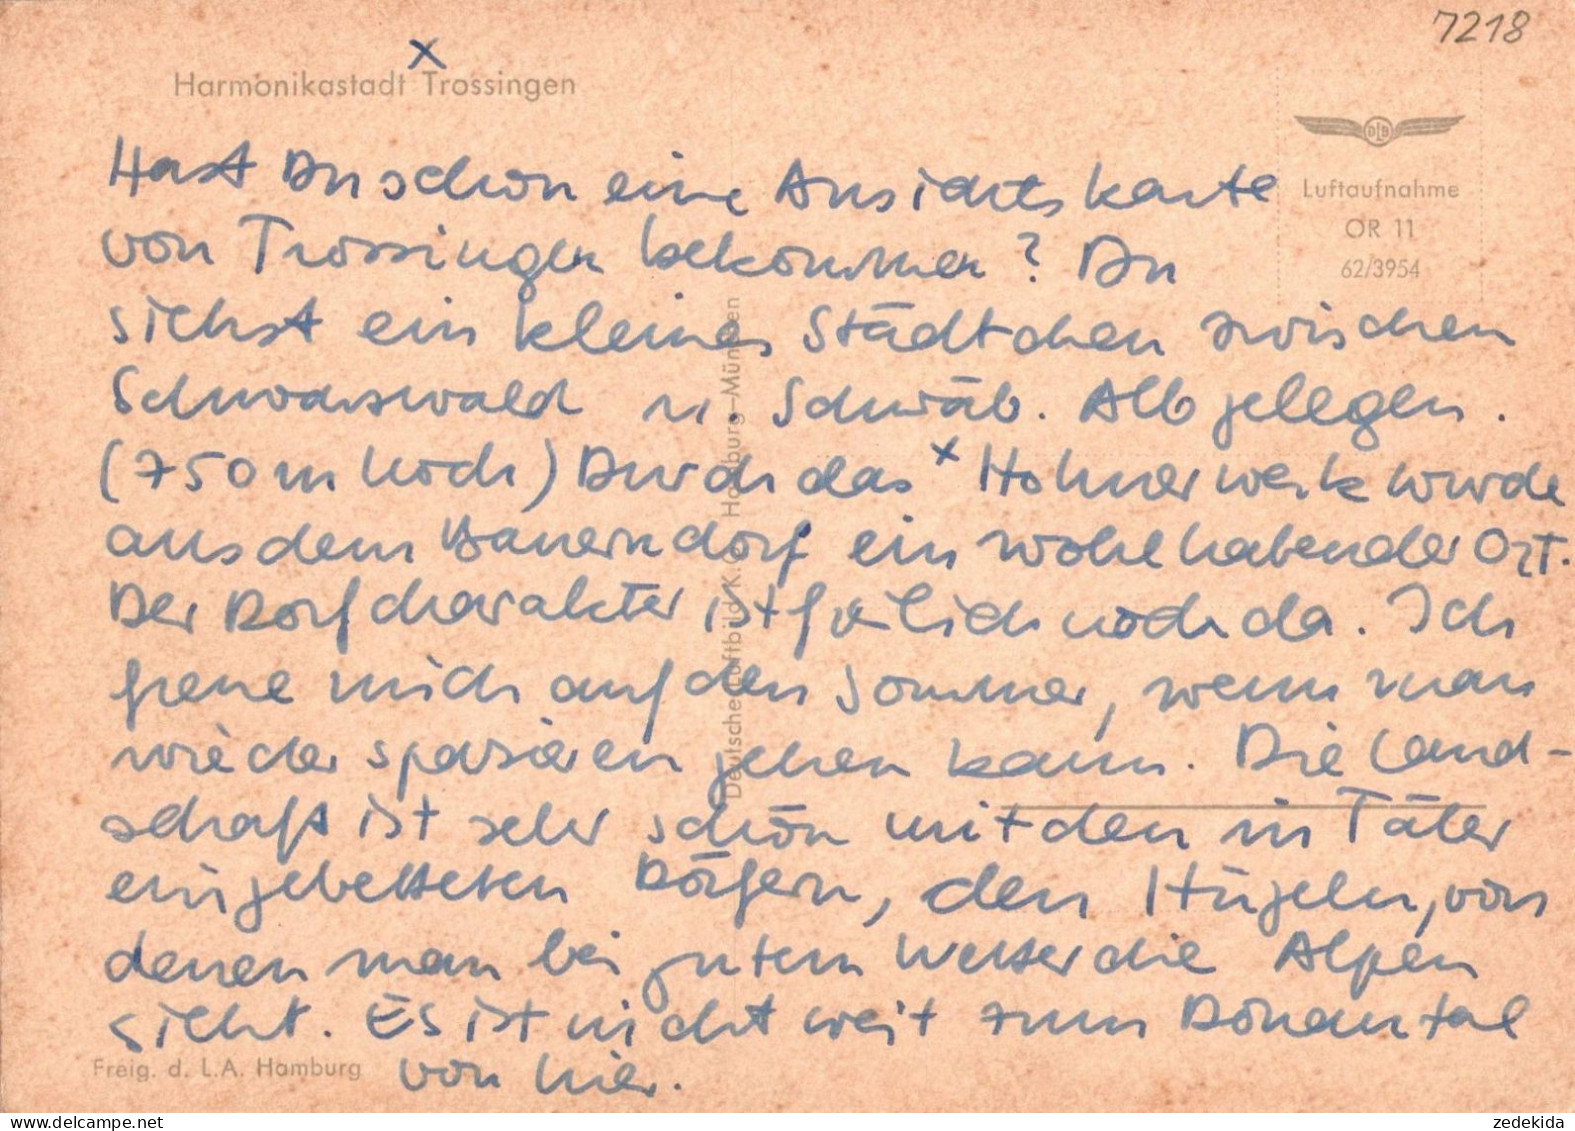 7218
x
Harmonikastadt Trossingen
DLB
Luftaufnahme
OR 11
62/3954
Hast Du schon eine Ansichtskarte
von Trossingen bekommen? Du
siehst ein kleines Städtchen zwischen
Schwarzwald u. Schwäb. Alb gelegen.
(750 m hoch) Durch das x Hohnerwerk wurde
aus dem Bauerndorf ein wohlhabender Ort.
Der Dorfcharakter ist freilich noch da. Ich
freue mich auf den Sommer, wenn man
wieder spazieren gehen kann. Die Land-
schaft ist sehr schön mit den in Täler
eingebetteten Dörfern, den Hügeln, von
denen man bei gutem Wetter die Alpen
sieht. Es ist nicht weit zum Donautal
von hier.
Freig. d. L.A. Hamburg
Deutsche Luftbild K.G. Hamburg-München
delcampe.net
zedekida